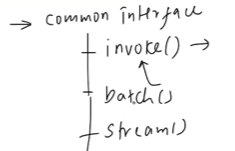 → common interface
invoke() →
batch()
stream()